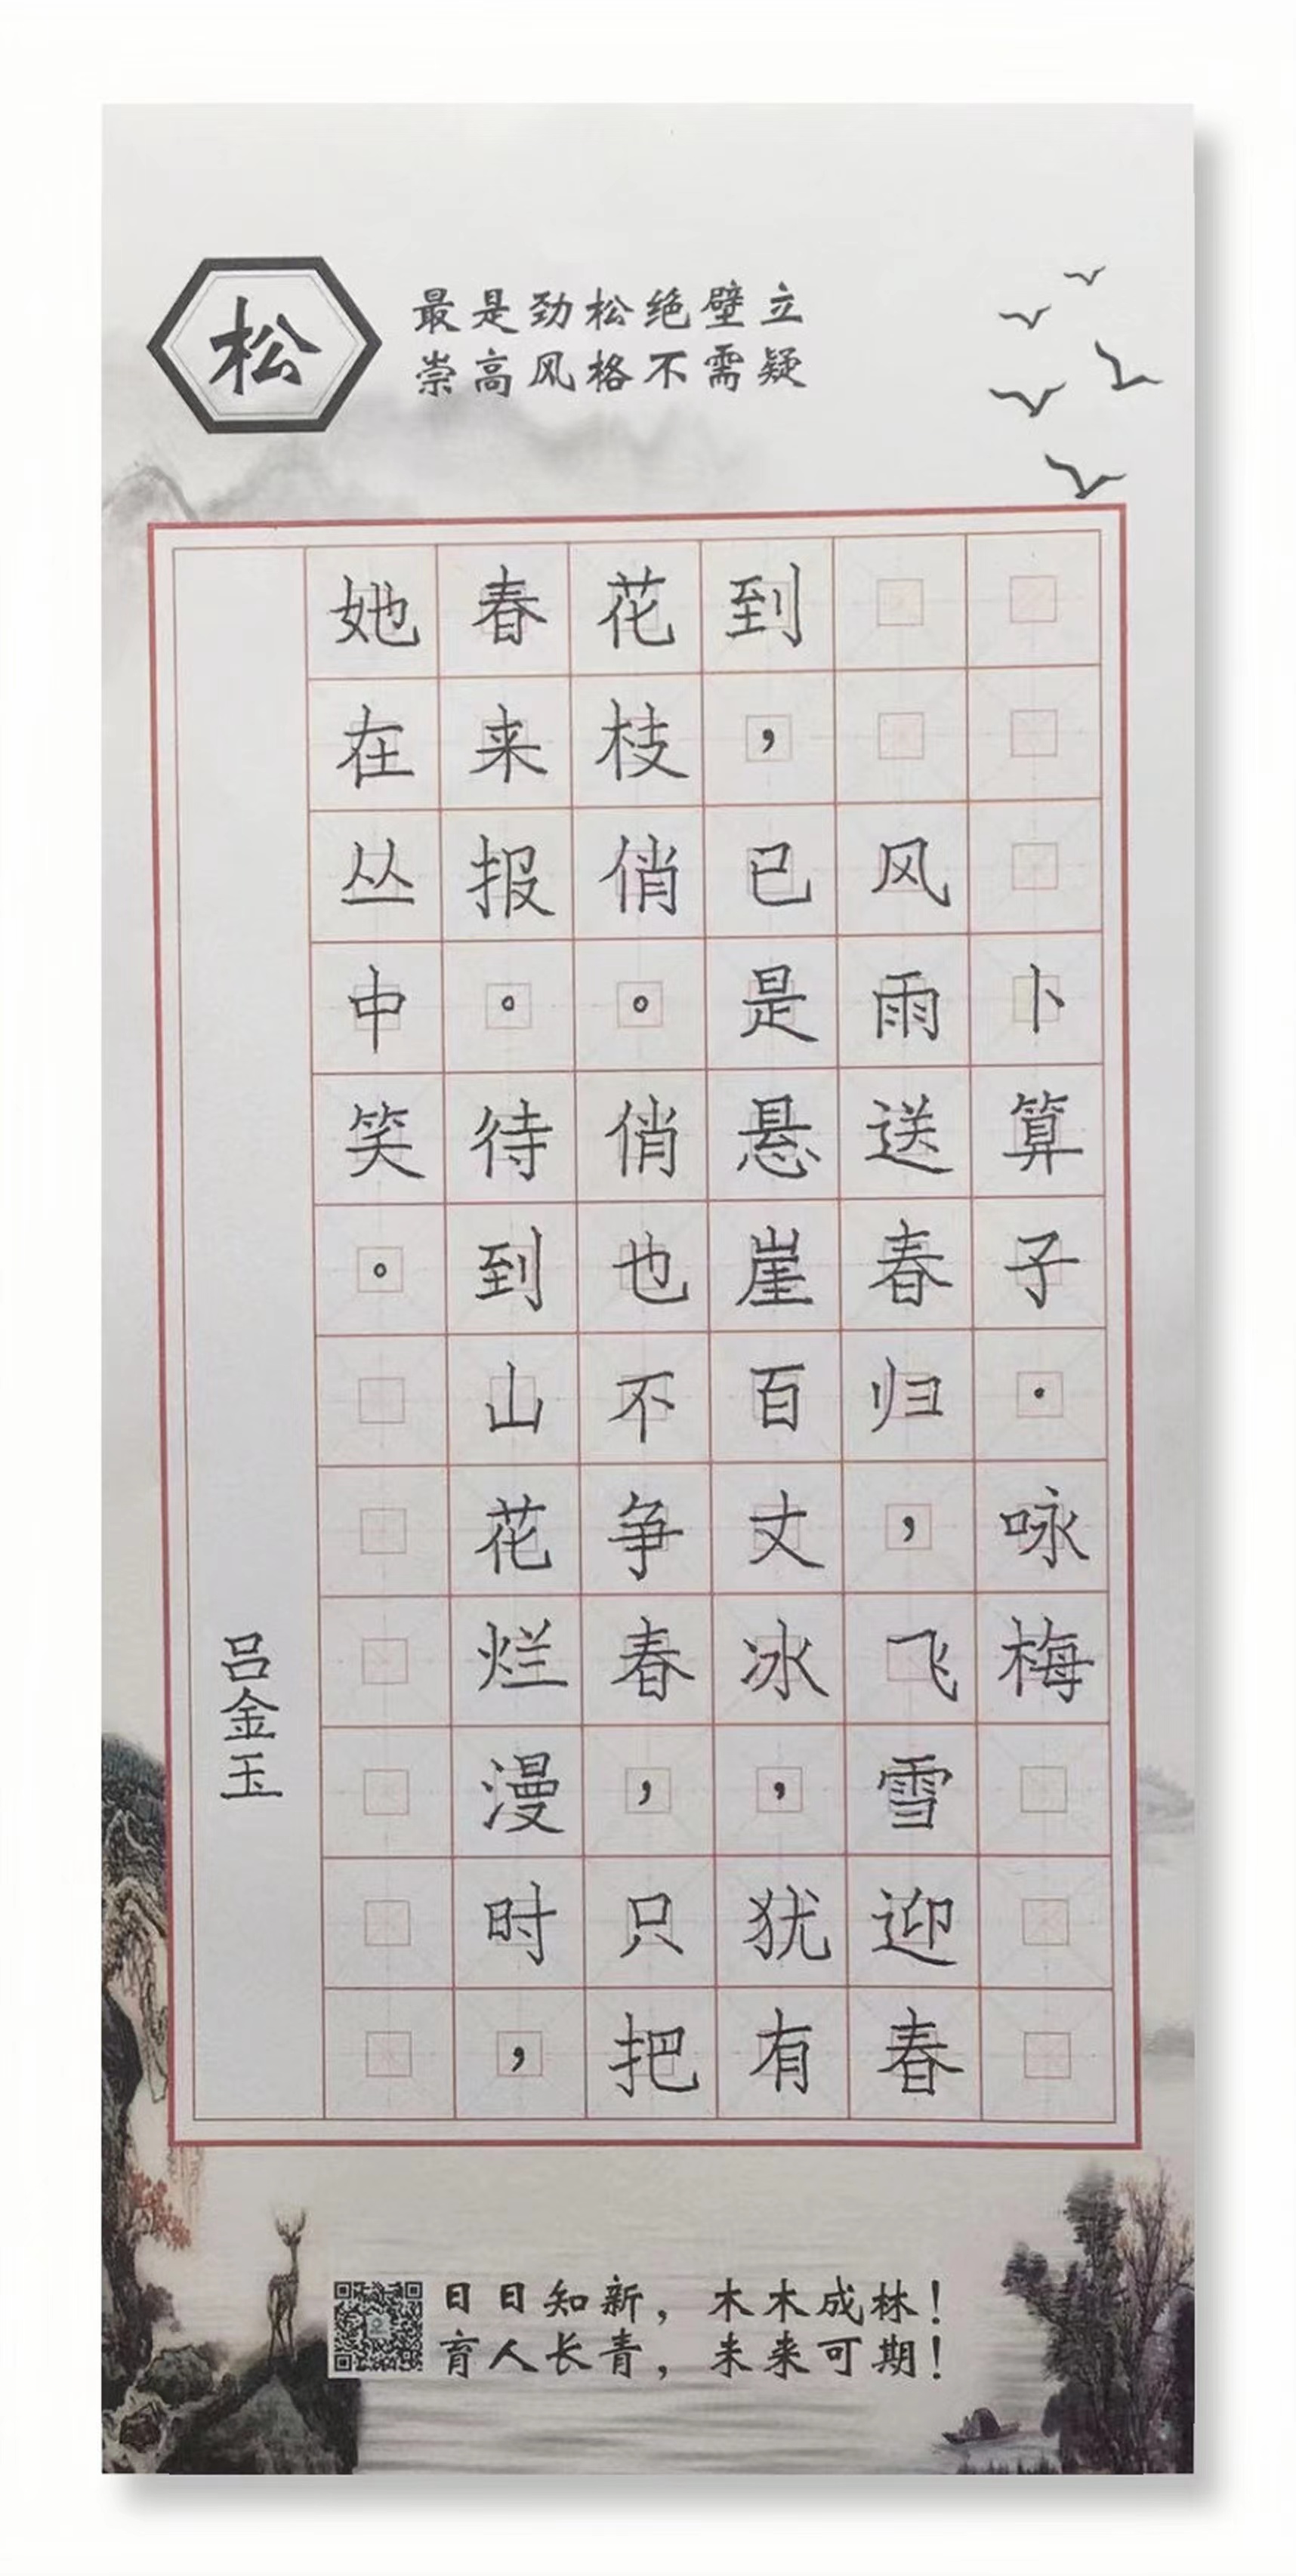 松
最是劲松绝壁立
崇高风格不需疑
卜算子·咏梅
风雨送春归,飞雪迎春
到,已是悬崖百丈冰,犹有
花枝俏。俏也不争春,只把
春来报。待到山花烂漫时,
她在丛中笑。
吕金玉
日日知新,木木成林!
育人长青,未来可期!